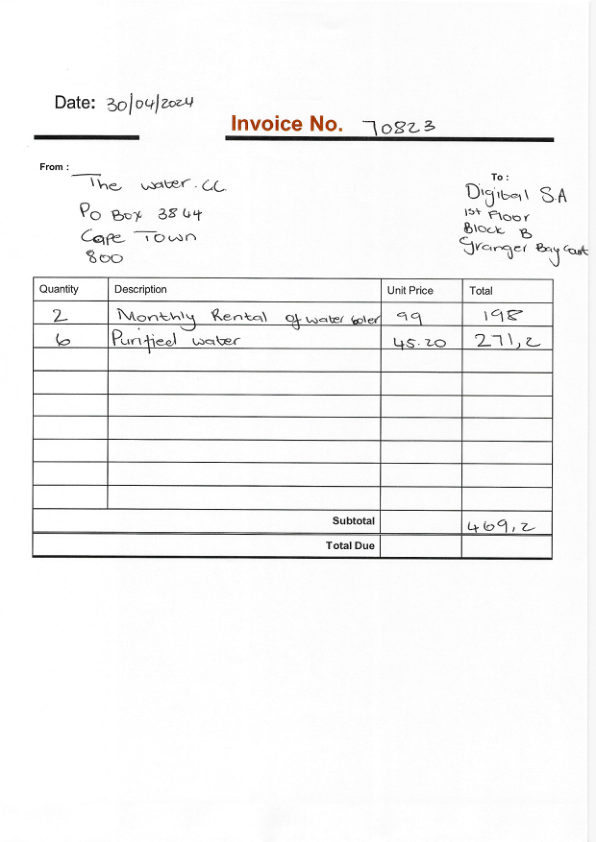 Date: 30/04/2024
Invoice No. 70823
From :
The water.CC
PO Box 3844
Cape Town
800
To :
Digital S.A
1st Floor
Block B
Granger Bay Court
Quantity Description Unit Price Total
2 Monthly Rental of water boler 99 198
6 Purified water 45.20 271,2
Subtotal 469,2
Total Due